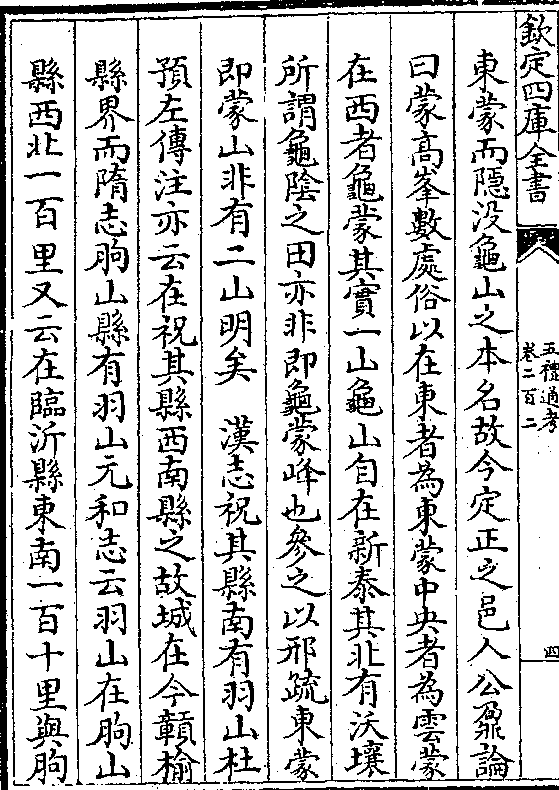 欽定四庫全書
五禮通考
卷二百二
四
東蒙而隱没龜山之本名故今定正之邑人公鼐論
曰蒙高峯數處俗以在東者為東蒙中央者為雲蒙
在西者龜蒙其實一山龜山自在新泰其北有沃壤
所謂龜陰之田亦非即龜蒙峰也參之以邢疏東蒙
即蒙山非有二山明矣　漢志祝其縣南有羽山杜
預左傳注亦云在祝其縣西南縣之故城在今贛榆
縣界而隋志朐山縣有羽山元和志云羽山在朐山
縣西北一百里又云在臨沂縣東南一百十里與朐